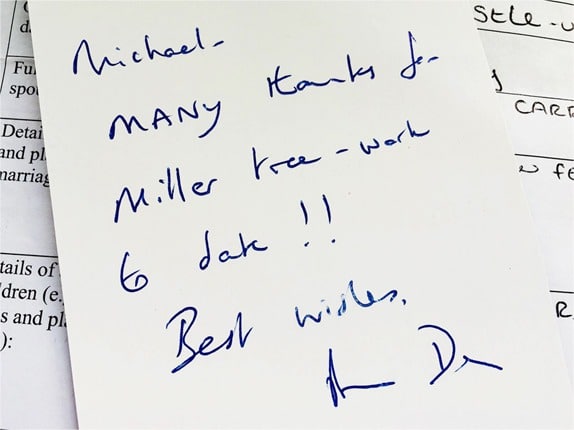 Michael-
MANY thanks for
Miller tree-work
to date !!
Best wishes.
Detai
and pl
marriag
tails of
dren (e.
s and pl
):
Fu
spou
CARR